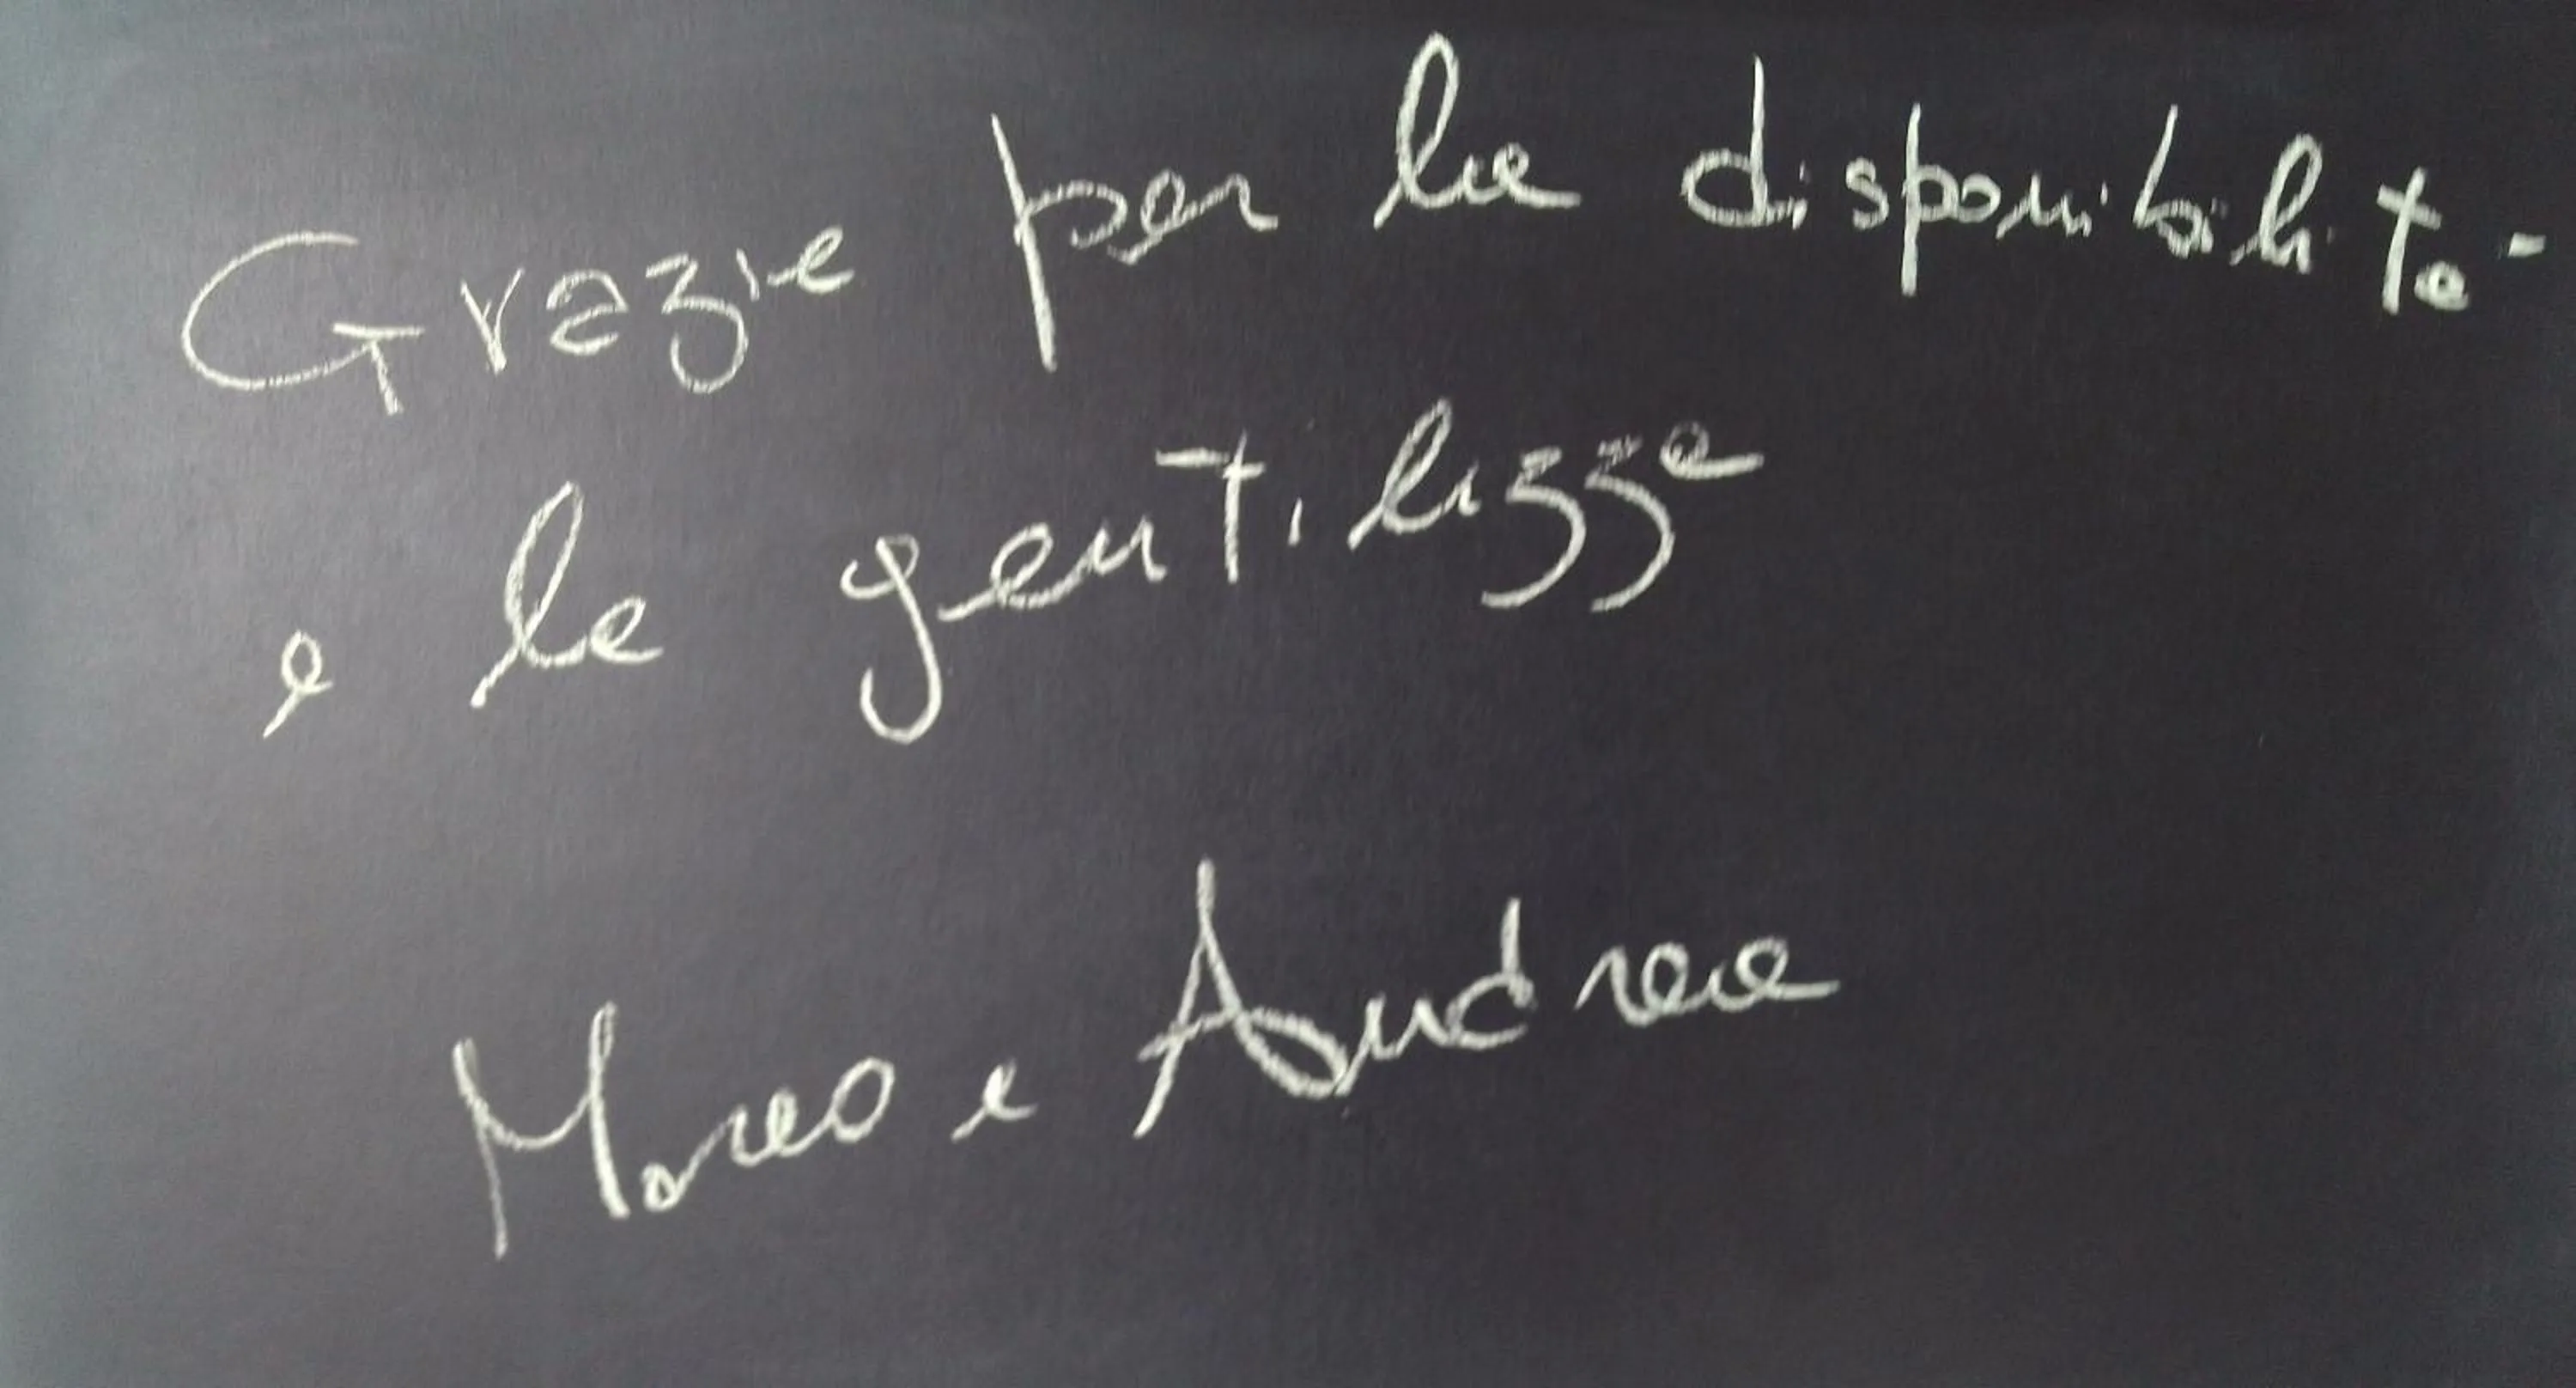 Grazie per la disponibilità
e la gentilezza
Marco e Andrea